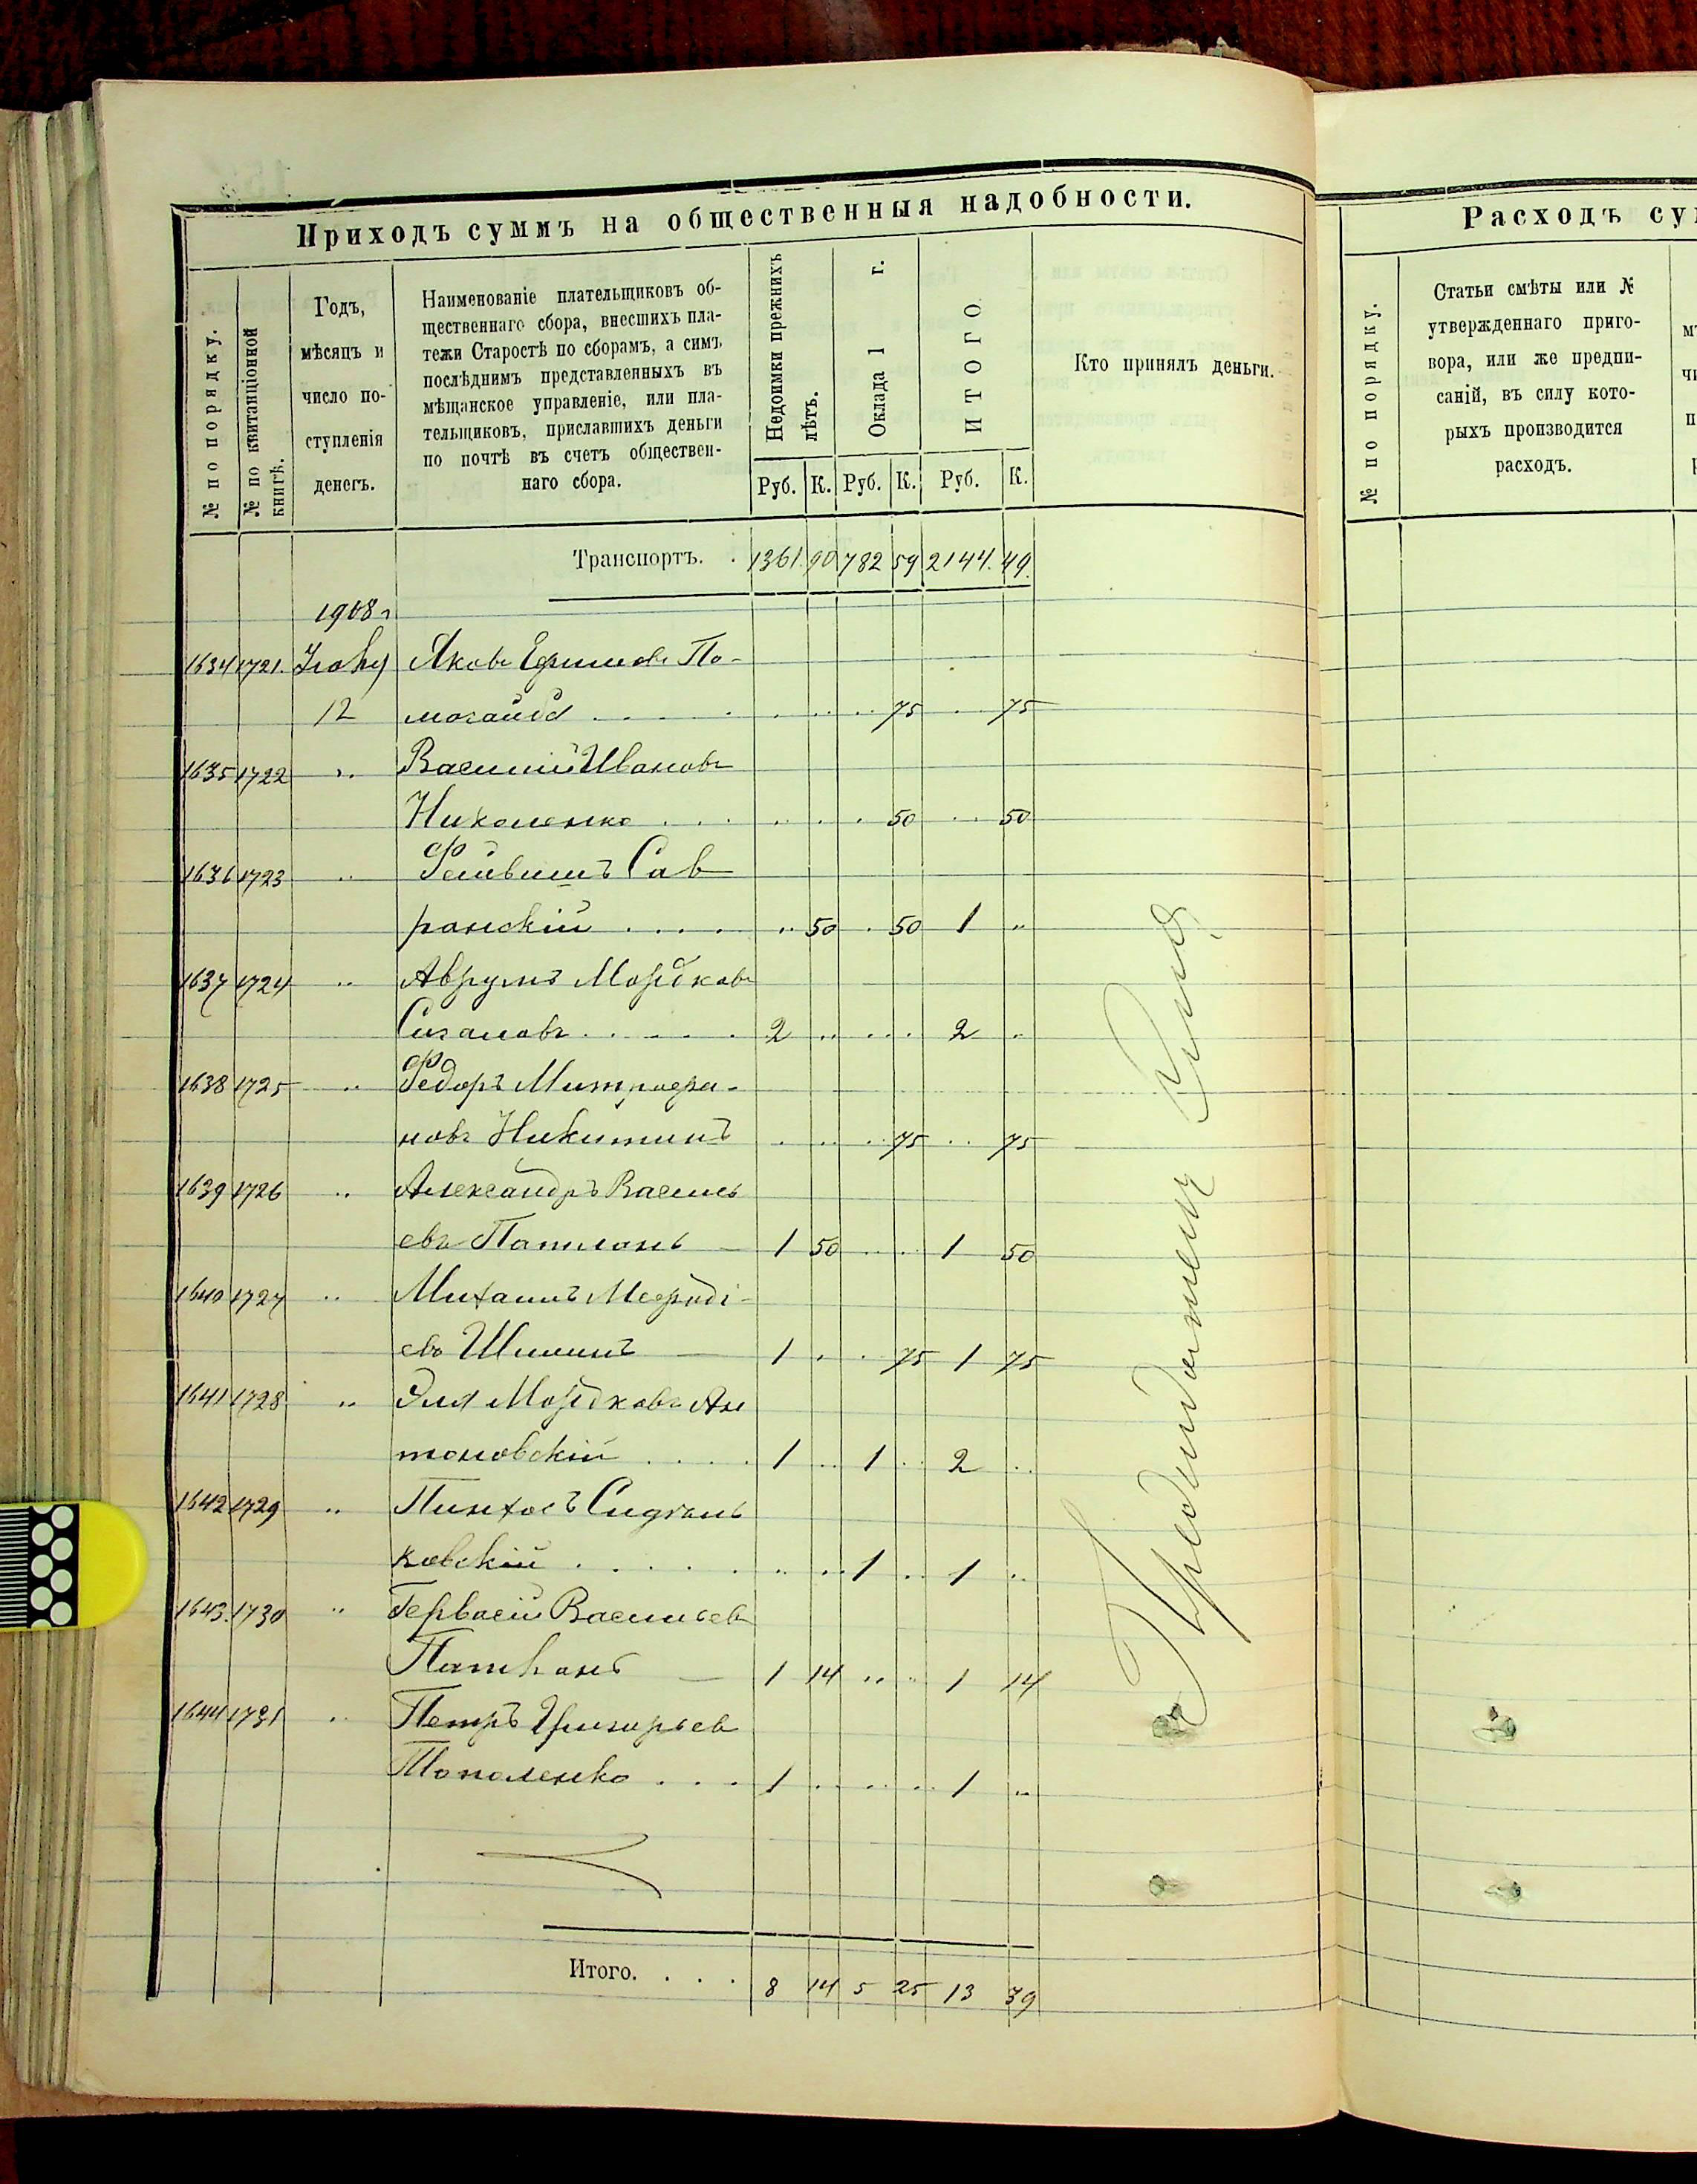 Приходъ суммъ на общественныя надобности.
№ по порядку.
№ по квитанціонной книгѣ.
Годъ,
мѣсяцъ и
число по-
ступленія
денегъ.
Наименованіе плательщиковъ об-
щественнаго сбора, внесшихъ пла-
тежи Старостѣ по сборамъ, а симъ
послѣднимъ представленныхъ въ
мѣщанское управленіе, или пла-
тельщиковъ, приславшихъ деньги
по почтѣ въ счетъ обществен-
наго сбора.
Недоимки прежнихъ лѣтъ.
Оклада 1 г.
ИТОГО
Руб. К. Руб. К. Руб. К.
Кто принялъ деньги.
Транспортъ. . 1361. 90 782 59 2144. 49.
1908 г
1634 1721. Яковъ Ефимовъ По-
12 могайба . . . 75 . 75
1635 1722 " Василій Ивановъ
Николенко . . . 50 . . 50
1636 1723 " Фейвишъ Сав
ранскій . . . . " 50 . 50 1 "
1637 1724 " Аврумъ Мордковъ
Сигаловъ . . . . 2 " . . 2 "
1638 1725 " Федоръ Митрофа-
новъ Никитинъ . . . 75 . . 75
1639 1726 " Александръ Василь
евъ 1 50 . . 1 50
1640 1727 " Михаилъ Мефоді-
евъ 1 . . 75 1 75
1641 1728 " Эля Мордковъ Ан
тоновскій . . . . 1 . . 1 . . 2 . .
1642 1729 " Пинхосъ
ковскій . . . . . . . 1 . . 1 "
1643. 1730 " Гервасій Васильев
1 14 " " 1 14
1644 1731 " Петръ Григорьев
Тополенко . . . 1 . . . . 1 "
Итого. . . . 8 14 5 25 13 39
Расходъ су
№ по порядку.
Статьи смѣты или №
утвержденнаго приго-
вора, или же предпи-
саній, въ силу кото-
рыхъ производится
расходъ.